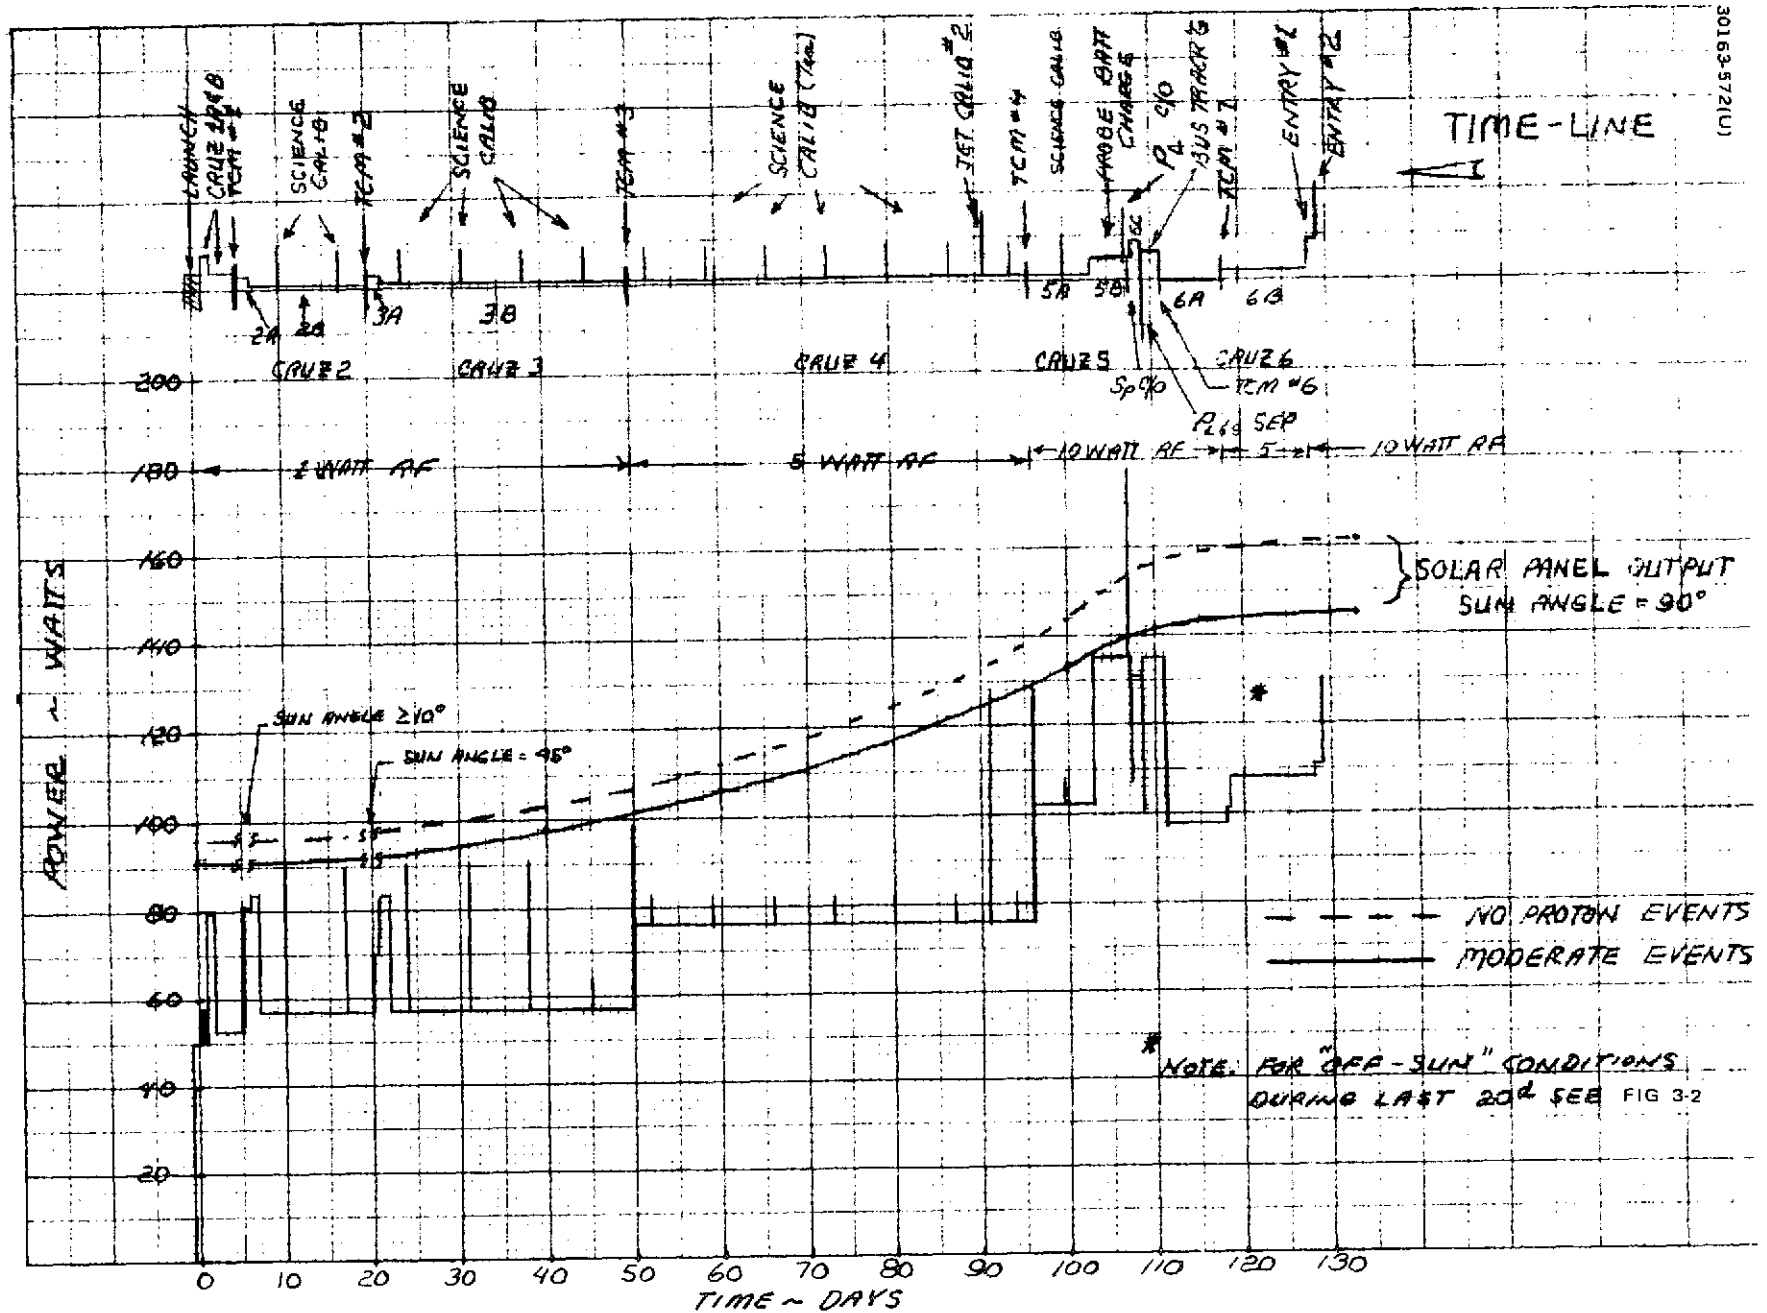 30163-572(U)
LAUNCH
CRUZ 1A&B
TCM #1
SCIENCE
CALIB
TCM #2
SCIENCE
CALIB
TCM #3
SCIENCE
CALIB (Two)
JET CALIB #2
TCM #4
SCIENCE CALIB
PROBE BATT
CHARGE
C/O
BUS TRACK'G
TCM #7
ENTRY #1
ENTRY #2
TIME-LINE
2A
2B
3A
3B
5A
5B
6A
6B
CRUZ 2
CRUZ 3
CRUZ 4
CRUZ 5
CRUZ 6
Sp C/O
TCM #6
SEP
200
180
160
140
120
100
80
60
40
20
WATT RF
5 WATT RF
10 WATT RF
5
10 WATT RF
POWER ~ WATTS
SOLAR PANEL OUTPUT
SUN ANGLE = 90°
SUN ANGLE ≥10°
SUN ANGLE = 45°
*
NO PROTON EVENTS
MODERATE EVENTS
* NOTE: FOR "OFF-SUN" CONDITIONS
DURING LAST 20d SEE FIG 3-2
0 10 20 30 40 50 60 70 80 90 100 110 120 130
TIME ~ DAYS